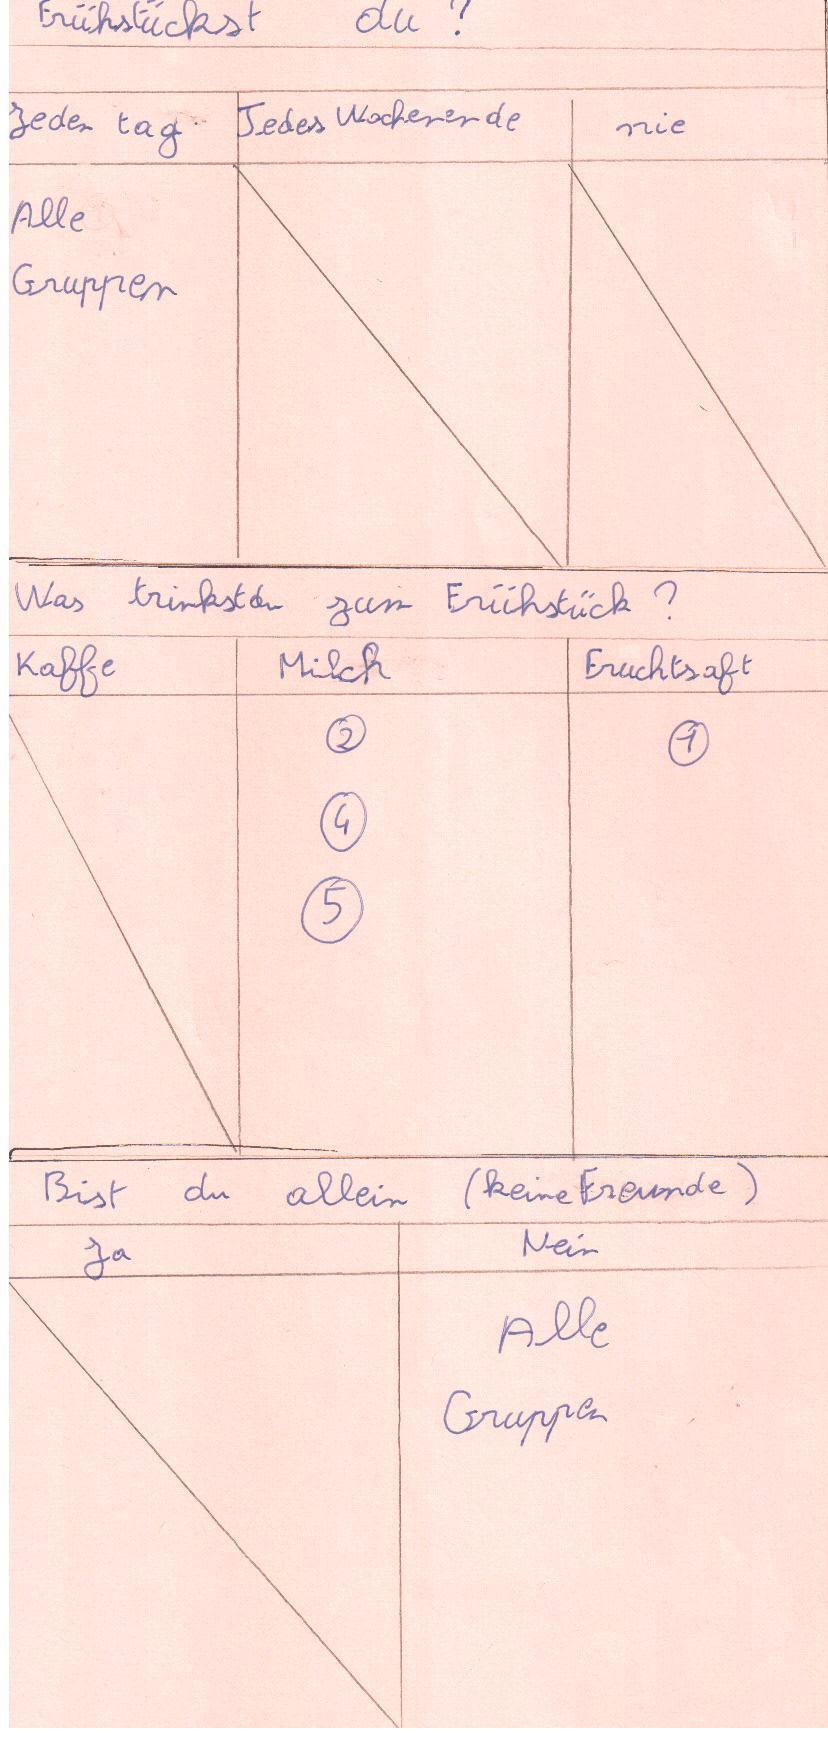 Frühstückst du ?
Jeden tag Jedes Wochenende nie
Alle
Gruppen
Was trinkstdu zum Frühstück ?
Kaffe Milch Fruchtsaft
2 1
4
5
Bist du allein (keine Freunde)
Ja Nein
Alle
Gruppen